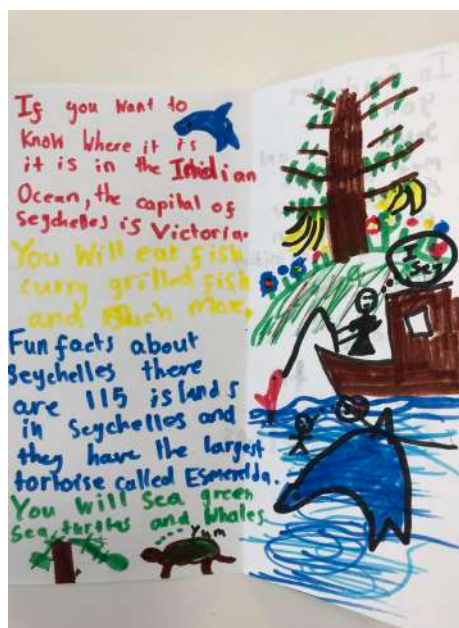 If you want to
know where it is
it is in the Indian
Ocean, the capital of
Seychelles is Victoria.
You will eat fish
curry grilled fish
and much mor,
Fun facts about
seychelles there
are 115 islands
in Seychelles and
they have the largest
tortoise called Esmerelda.
You will sea green
sea turtles and whales
Yum
I
Sey